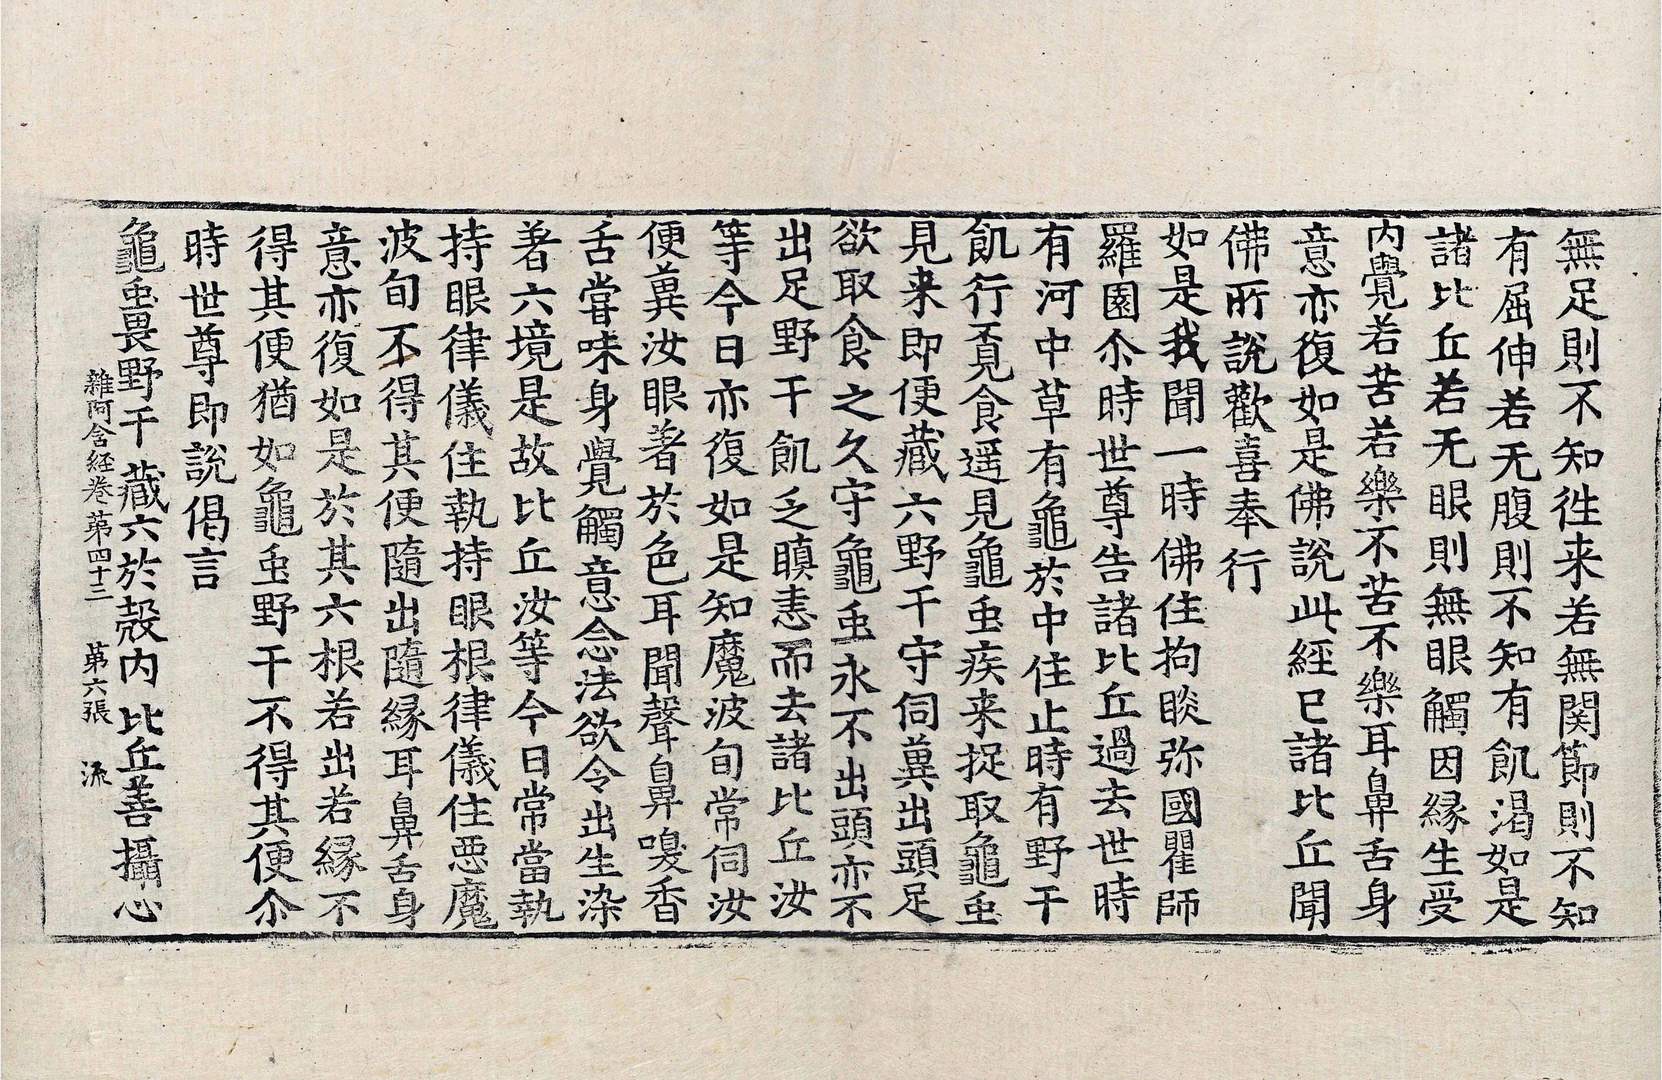 無足則不知徃来若無関節則不知
有屈伸若无腹則不知有飢渇如是
諸比丘若无眼則無眼觸因縁生受
内覺若苦若樂不苦不樂耳鼻舌身
意亦復如是佛說此經已諸比丘聞
佛所說歡喜奉行
如是我聞一時佛住拘睒弥國瞿師
羅園尒時世尊告諸比丘過去世時
有河中草有龜於中住止時有野干
飢行覓食遥見龜虫疾来捉取龜虫
見来即便藏六野干守伺兾出頭足
欲取食之久守龜虫永不出頭亦不
出足野干飢乏瞋恚而去諸比丘汝
等今日亦復如是知魔波旬常伺汝
便兾汝眼著於色耳聞聲鼻嗅香
舌嘗味身覺觸意念法欲令出生染
著六境是故比丘汝等今日常當執
持眼律儀住執持眼根律儀住悪魔
波旬不得其便隨出隨縁耳鼻舌身
意亦復如是於其六根若出若縁不
得其便猶如龜虫野干不得其便尒
時世尊即說偈言
龜虫畏野干藏六於殼内比丘善攝心
雜阿含経卷苐四十三 苐六張 流